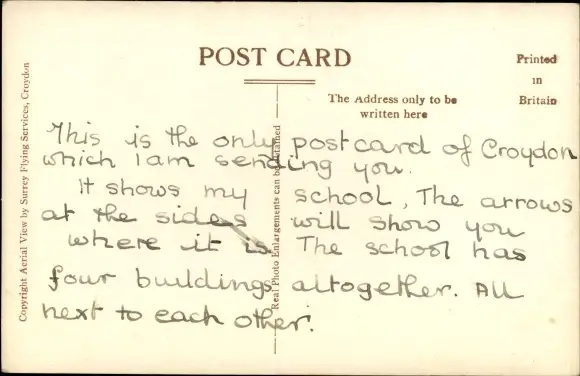 POST CARD
Printed
in
Britain
The Address only to be
written here
This is the only postcard of Croydon
which I am sending you.
It shows my school, The arrows
at the sides will show you
where it is The school has
four buildings altogether. All
next to each other.
Copyright Aerial View by Surrey Flying Services, Croydon
Real Photo Enlargements can be obtained